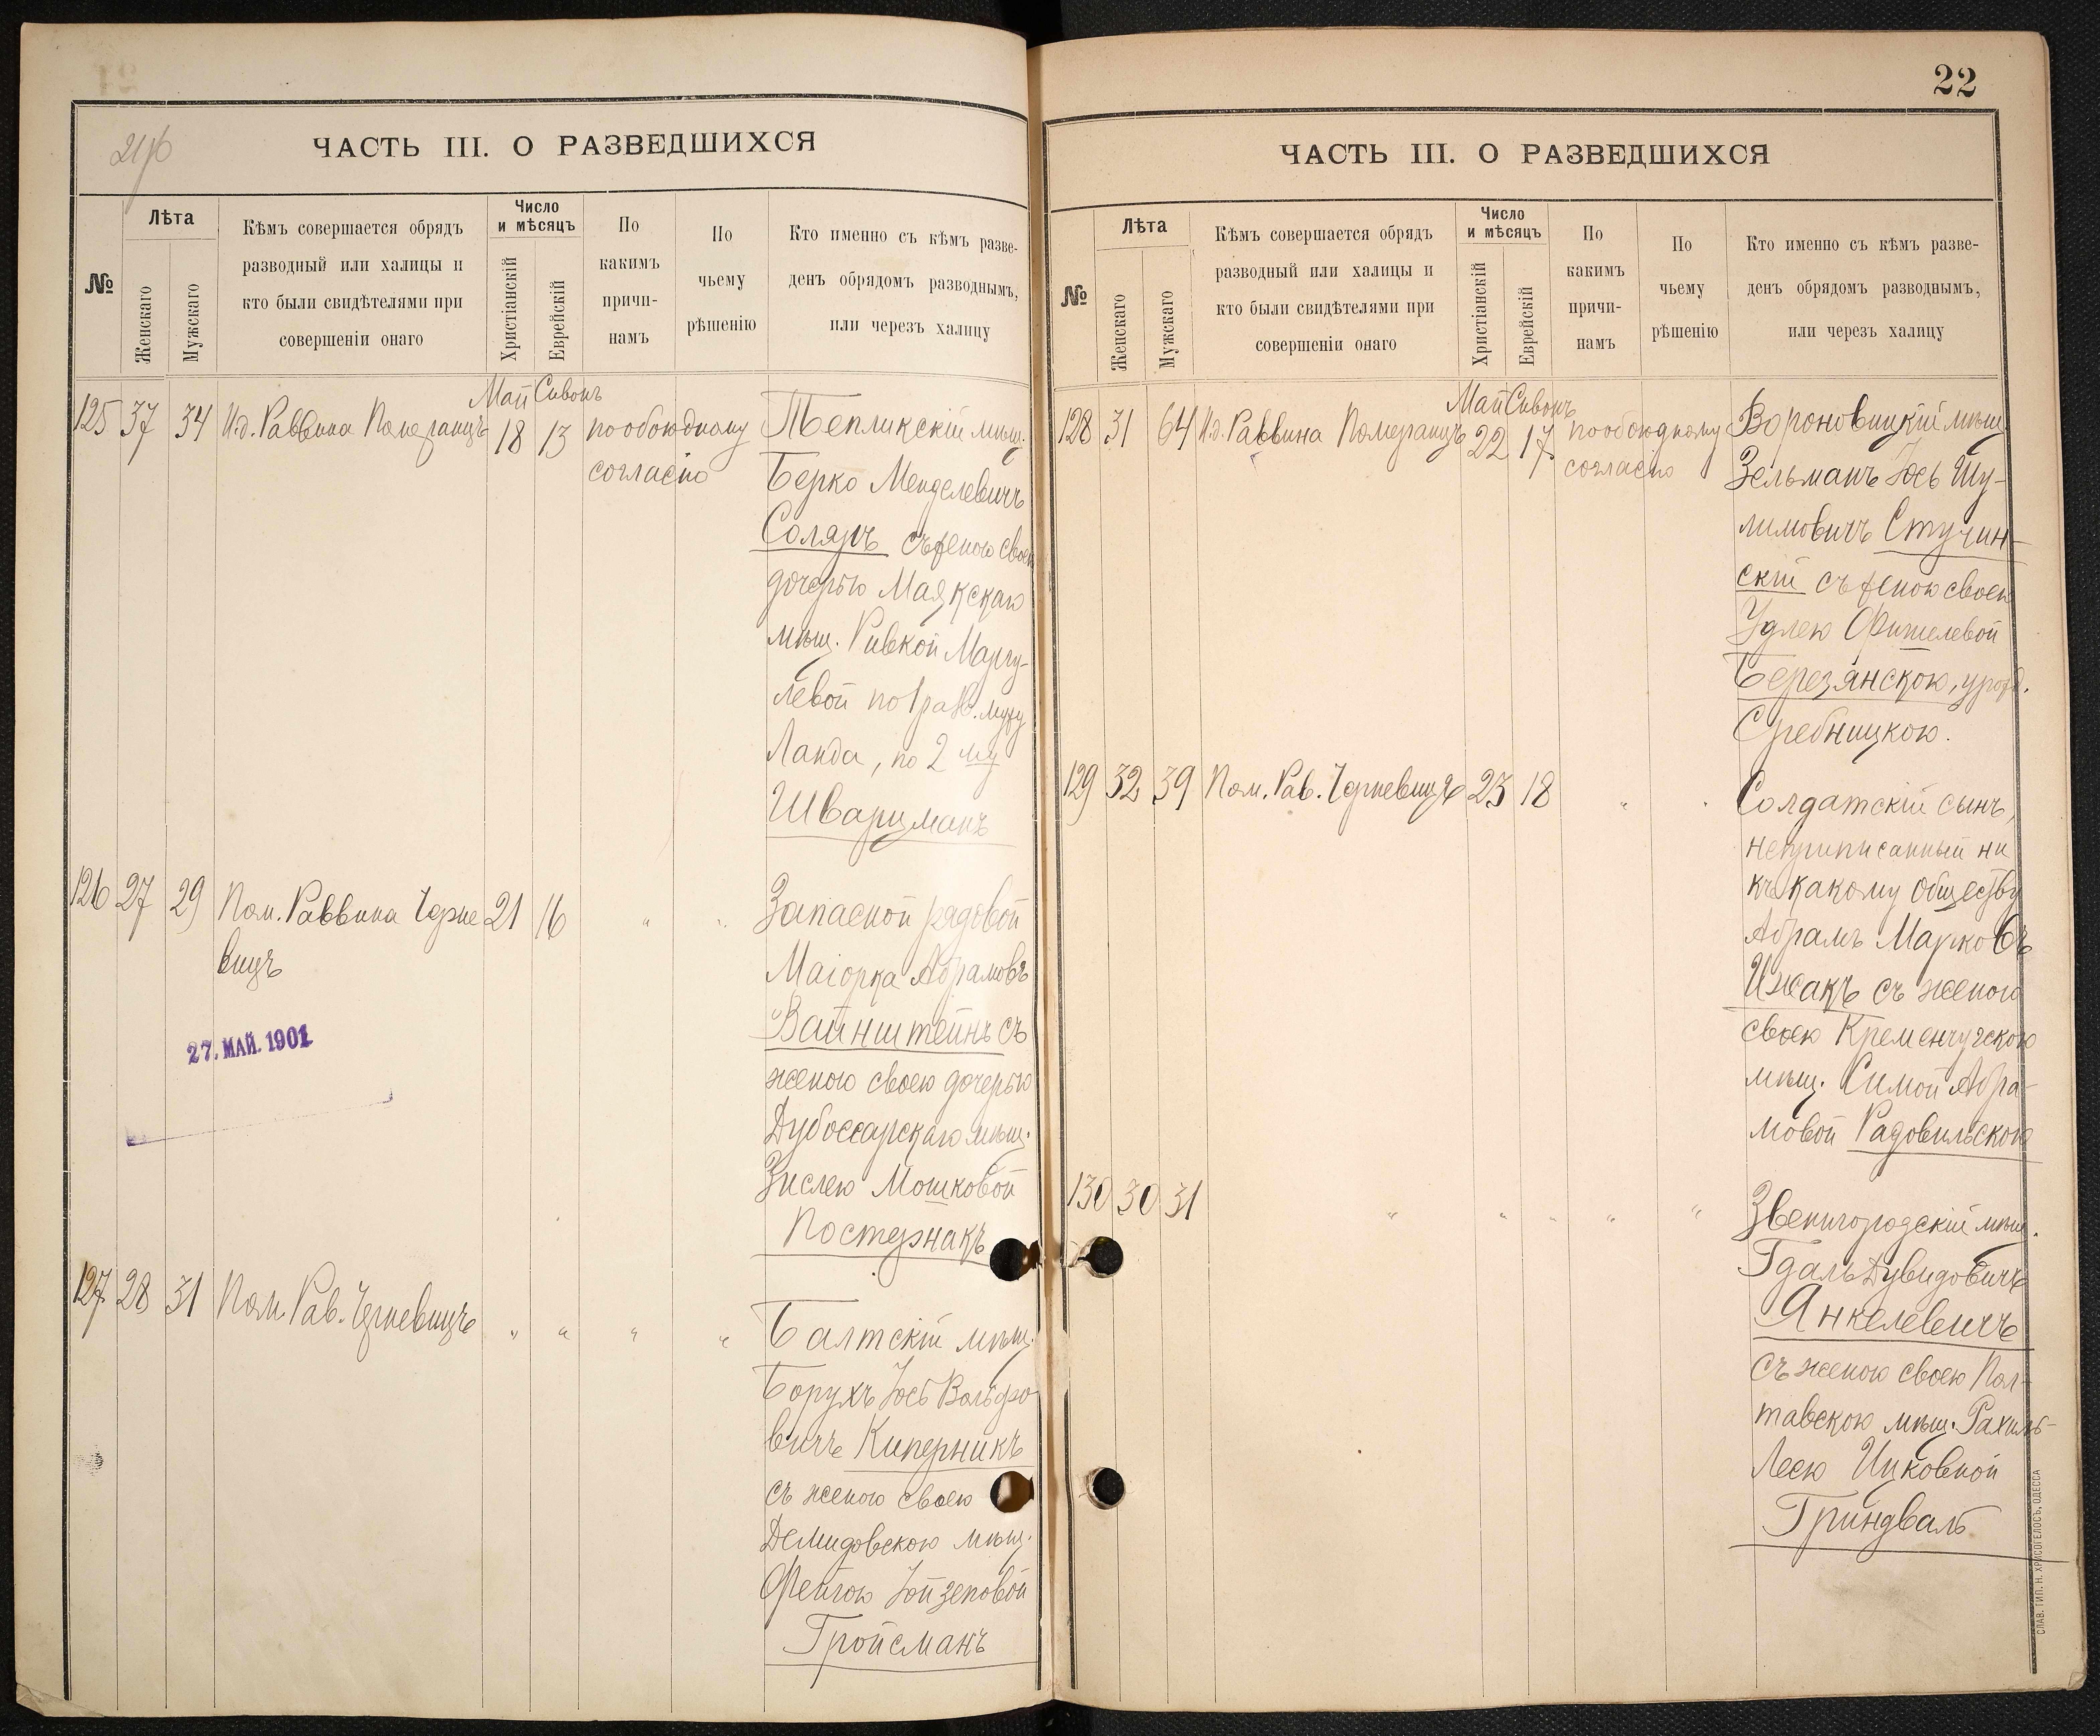 ЧАСТЬ III. О РАЗВЕДШИХСЯ
№
Лѣта
Женскаго
Мужскаго
Кѣмъ совершается обрядъ
разводный или халицы и
кто были свидѣтелями при
совершеніи онаго
Число
и мѣсяцъ
Христіанскій
Еврейскій
По
какимъ
причи-
намъ
По
чьему
рѣшенію
Кто именно съ кѣмъ разве-
денъ обрядомъ разводнымъ,
или черезъ халицу
Май Сивонъ
125 37 34 И.д. Раввина Померанцъ 18 13 по обоюдному
согласію
Тепликскій мѣщ.
Берко Менделевичъ
Соляръ съ женою своею
дочерью Маякскаго
мѣщ. Ривкой Маргу-
левой по 1 брак. мужу
Ланда, по 2 му
Шварцманъ
126 27 29 Пом. Раввина Черне 21 16 " "
вицъ
Запасной рядовой
Маіорка Абрамовъ
Вайнштейнъ съ
женою своею дочерью
Дубоссарскаго мѣщ.
Зислею Мошковой
Постернакъ
27. МАЙ. 1901
127 28 31 Пом. Рав. Черневицъ " " " "
Балтскій мѣщ.
Борухъ Іось Вольфо
вичъ Киперникъ
съ женою своею
Демидовскою мѣщ.
Фейгою Іойзеповой
Гройсманъ
22
ЧАСТЬ III. О РАЗВЕДШИХСЯ
№
Лѣта
Женскаго
Мужскаго
Кѣмъ совершается обрядъ
разводный или халицы и
кто были свидѣтелями при
совершеніи онаго
Число
и мѣсяцъ
Христіанскій
Еврейскій
По
какимъ
причи-
намъ
По
чьему
рѣшенію
Кто именно съ кѣмъ разве-
денъ обрядомъ разводнымъ,
или черезъ халицу
Май Сивонъ
128 31 64 И.д. Раввина Померанцъ 22 17 по обоюдному
согласію
Вороновицкій мѣщ.
Зельманъ Іось Шу-
лимовичъ Стучин-
скій съ женою своею
Удлею Фишелевой
Березянскою, урожд.
Сребницкою.
129 32 39 Пом. Рав. Черневицъ 23 18 " "
Солдатскій сынъ,
неприписанный ни
къ какому обществу
Абрамъ Марковъ
Ижакъ съ женою
своею Кременчугскою
мѣщ. Симой Абра-
мовой Радовильскою
130 30 31 " " " " "
Звенигородскій мѣщ.
Гдаль Дувидовичъ
Янкелевичъ
съ женою своею Пол-
тавскою мѣщ. Рахиль-
Леею Ицковной
Гриндваль
СЛАВ. ТИП. Н. ХРИСОГЕЛОСЪ, ОДЕССА